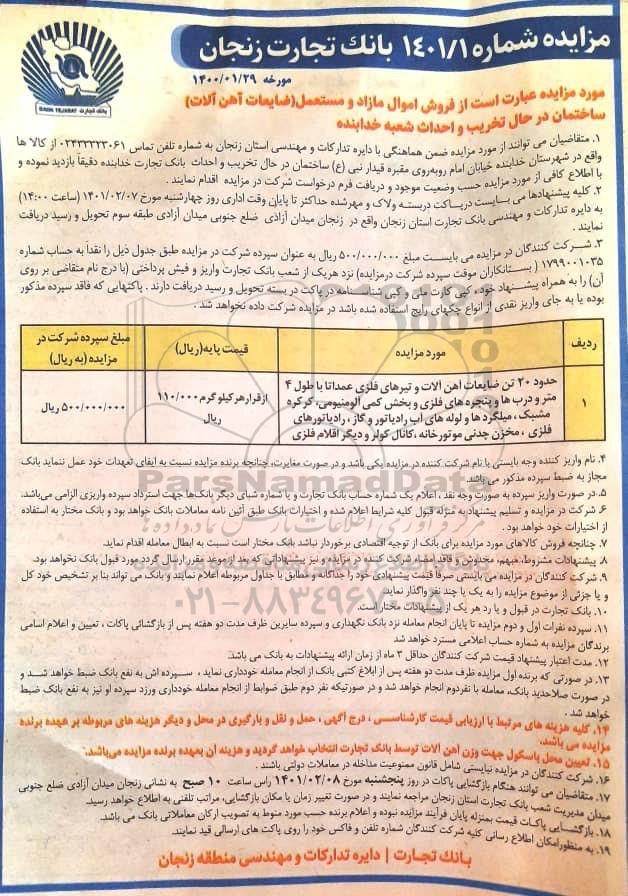 مزایده شماره ۱۴۰۱/۱ بانک تجارت زنجان
مورخه ۱۴۰۰/۰۱/۲۹
بانک تجارت BANK TEJARAT
مورد مزایده عبارت است از فروش اموال مازاد و مستعمل(ضایعات آهن آلات)
ساختمان در حال تخریب و احداث شعبه خدابنده
۱. متقاضیان می توانند از مورد مزایده ضمن هماهنگی با دایره تدارکات و مهندسی استان زنجان به شماره تلفن تماس ۰۲۴۳۳۳۲۳۰۶۱ از کالا ها
واقع در شهرستان خدابنده خیابان امام روبه‌روی مقبره قیدار نبی (ع) ساختمان در حال تخریب و احداث بانک تجارت خدابنده دقیقاً بازدید نموده و
با اطلاع کافی از مورد مزایده حسب وضعیت موجود و دریافت فرم درخواست شرکت در مزایده اقدام نمایند .
۲. کلیه پیشنهادها می بایست درپاکت دربسته ولاک و مهرشده حداکثر تا پایان وقت اداری روز چهارشنبه مورخ ۱۴۰۱/۰۲/۰۷ (ساعت ۱۴:۰۰)
به دایره تدارکات و مهندسی بانک تجارت استان زنجان واقع در زنجان میدان آزادی ضلع جنوبی میدان آزادی طبقه سوم تحویل و رسید دریافت
نمایند .
۳. شرکت کنندگان در مزایده می بایست مبلغ ۵۰۰/۰۰۰/۰۰۰ ریال به عنوان سپرده شرکت در مزایده طبق جدول ذیل را نقداً به حساب شماره
۱۷۹۹۰۰۱۰۳۵ ( بستانکاران موقت سپرده شرکت درمزایده) نزد هریک از شعب بانک تجارت واریز و فیش پرداختی (با درج نام متقاضی بر روی
آن) را به همراه پیشنهاد خود، کپی کارت ملی و کپی شناسنامه در پاکت در بسته تحویل و رسید دریافت دارند . پاکتهایی که فاقد سپرده مذکور
بوده یا به جای واریز نقدی از انواع چکهای رایج استفاده شده باشد در مزایده شرکت داده نخواهد شد .
ردیف
مورد مزایده
قیمت پایه(ریال)
مبلغ سپرده شرکت در
مزایده (به ریال)
۱
حدود ۲۰ تن ضایعات آهن آلات و تیرهای فلزی عمدتا با طول ۴
متر و درب ها و پنجره های فلزی و بخش کمی آلومینیومی، کرکره
مشبک ، میلگرد ها و لوله های آب رادیاتور و گاز ، رادیاتورهای
فلزی ، مخزن چدنی موتورخانه ،کانال کولر و دیگر اقلام فلزی
ازقرارهرکیلوگرم ۱۱۰/۰۰۰
ریال
۵۰۰/۰۰۰/۰۰۰ ریال
۴. نام واریز کننده وجه بایستی با نام شرکت کننده در مزایده یکی باشد و در صورت مغایرت، چنانچه برنده مزایده نسبت به ایفای تعهدات خود عمل ننماید بانک
مجاز به ضبط سپرده مذکور می باشد.
۵. در صورت واریز سپرده به صورت وجه نقد ، اعلام یک شماره حساب بانک تجارت و یا شماره شبای دیگر بانک‌ها جهت استرداد سپرده واریزی الزامی می‌باشد.
۶. شرکت در مزایده و تسلیم پیشنهاد به منزله قبول کلیه شرایط اعلام شده و اختیارات بانک طبق آئین نامه معاملات بانک خواهد بود و بانک مختار به استفاده
از اختیارات خود خواهد بود .
۷. چنانچه فروش کالاهای مورد مزایده برای بانک از توجیه اقتصادی برخوردار نباشد بانک مختار است نسبت به ابطال معامله اقدام نماید.
۸. پیشنهادات مشروط، مبهم، مخدوش و فاقد امضاء شرکت کننده در مزایده و نیز پیشنهاداتی که بعد از موعد مقرر ارسال گردد مورد قبول بانک نخواهد بود.
۹. شرکت کنندگان در مزایده می بایستی صرفا قیمت پیشنهادی خود را جداگانه و مطابق با جداول مربوطه اعلام نمایند و بانک می تواند بنا بر تشخیص خود کل
و یا جزئی از موضوع مزایده را به یک یا چند نفر واگذار نماید
۱۰. بانک تجارت در قبول و یا رد هر یک از پیشنهادات مختار است.
۱۱. سپرده نفرات اول و دوم مزایده تا پایان انجام معامله نزد بانک نگهداری و سپرده سایرین ظرف مدت دو هفته پس از بازگشائی پاکات ، تعیین و اعلام اسامی
برندگان مزایده به شماره حساب اعلامی مسترد خواهد شد
۱۲. مدت اعتبار پیشنهاد قیمت شرکت کنندگان حداقل ۳ ماه از زمان ارائه پیشنهادات به بانک می باشد.
۱۳. در صورتی که برنده اول مزایده ظرف مدت دو هفته پس از ابلاغ کتبی بانک از انجام معامله خودداری نماید ، سپرده اش به نفع بانک ضبط خواهد شد و
در صورت صلاحدید بانک، معامله با نفردوم انجام خواهد شد و در صورتیکه نفر دوم طبق ضوابط از انجام معامله خودداری ورزد سپرده او نیز به نفع بانک ضبط
خواهد شد .
۱۴. کلیه هزینه های مرتبط با ارزیابی قیمت کارشناسی ، درج آگهی ، حمل و نقل و بارگیری در محل و دیگر هزینه های مربوطه بر عهده برنده
مزایده می باشد.
۱۵. تعیین محل باسکول جهت وزن آهن آلات توسط بانک تجارت انتخاب خواهد گردید و هزینه آن بعهده برنده مزایده می‌باشد.
۱۶. شرکت کنندگان در مزایده نبایستی شامل قانون ممنوعیت مداخله در معاملات دولتی باشند .
۱۷. متقاضیان می توانند هنگام بازگشایی پاکات در روز پنجشنبه مورخ ۱۴۰۱/۰۲/۰۸ راس ساعت ۱۰ صبح به نشانی زنجان میدان آزادی ضلع جنوبی
میدان مدیریت شعب بانک تجارت استان زنجان مراجعه نمایند و در صورت تغییر زمان یا مکان بازگشایی، مراتب تلفنی به اطلاع خواهد رسید.
۱۸. بازگشایی پاکات قیمت بمنزله پایان فرآیند مزایده نبوده و اعلام برنده حسب مورد منوط به تصویب ارکان معاملاتی بانک می باشد.
۱۹. به منظورامکان اطلاع رسانی کلیه شرکت کنندگان شماره تلفن و فاکس خود را روی پاکت های ارسالی قید نمایند.
بانک تجارت | دایره تدارکات و مهندسی منطقه زنجان
ParsNamadData
۰۲۱-۸۸۳۴۹۶۷۰-۵